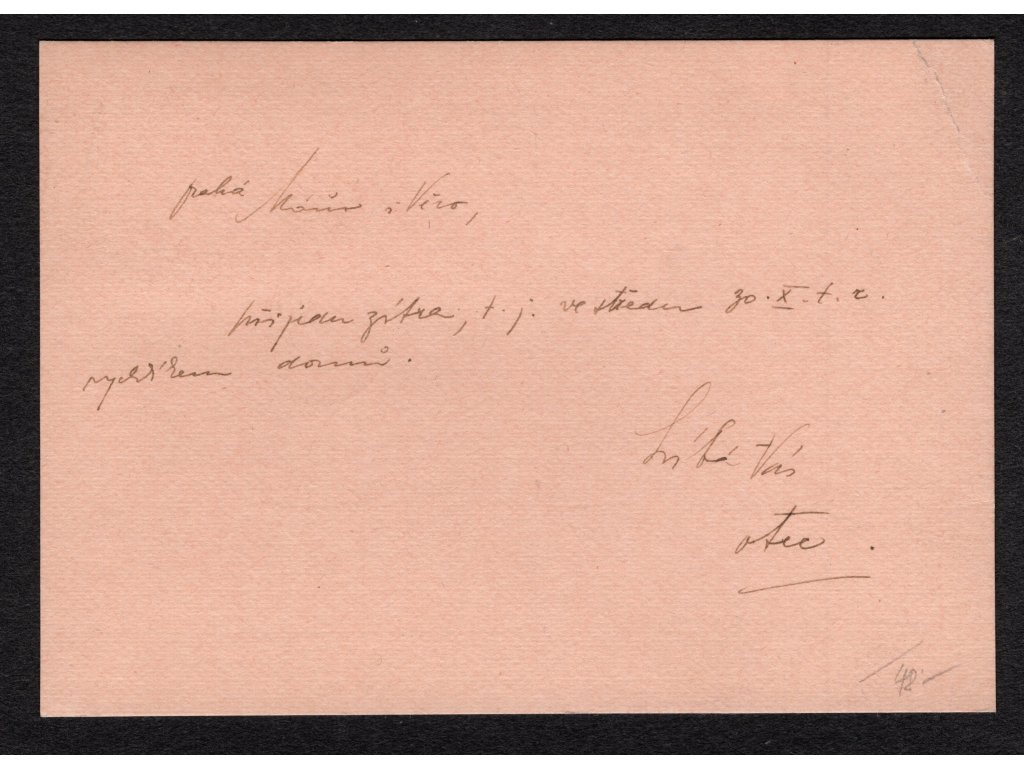 drahá Máňo i Věro,
přijedu zítra, t. j. ve středu 30. X. t. r.
rychlíkem domů.
Líbá Vás
otec.
48.-